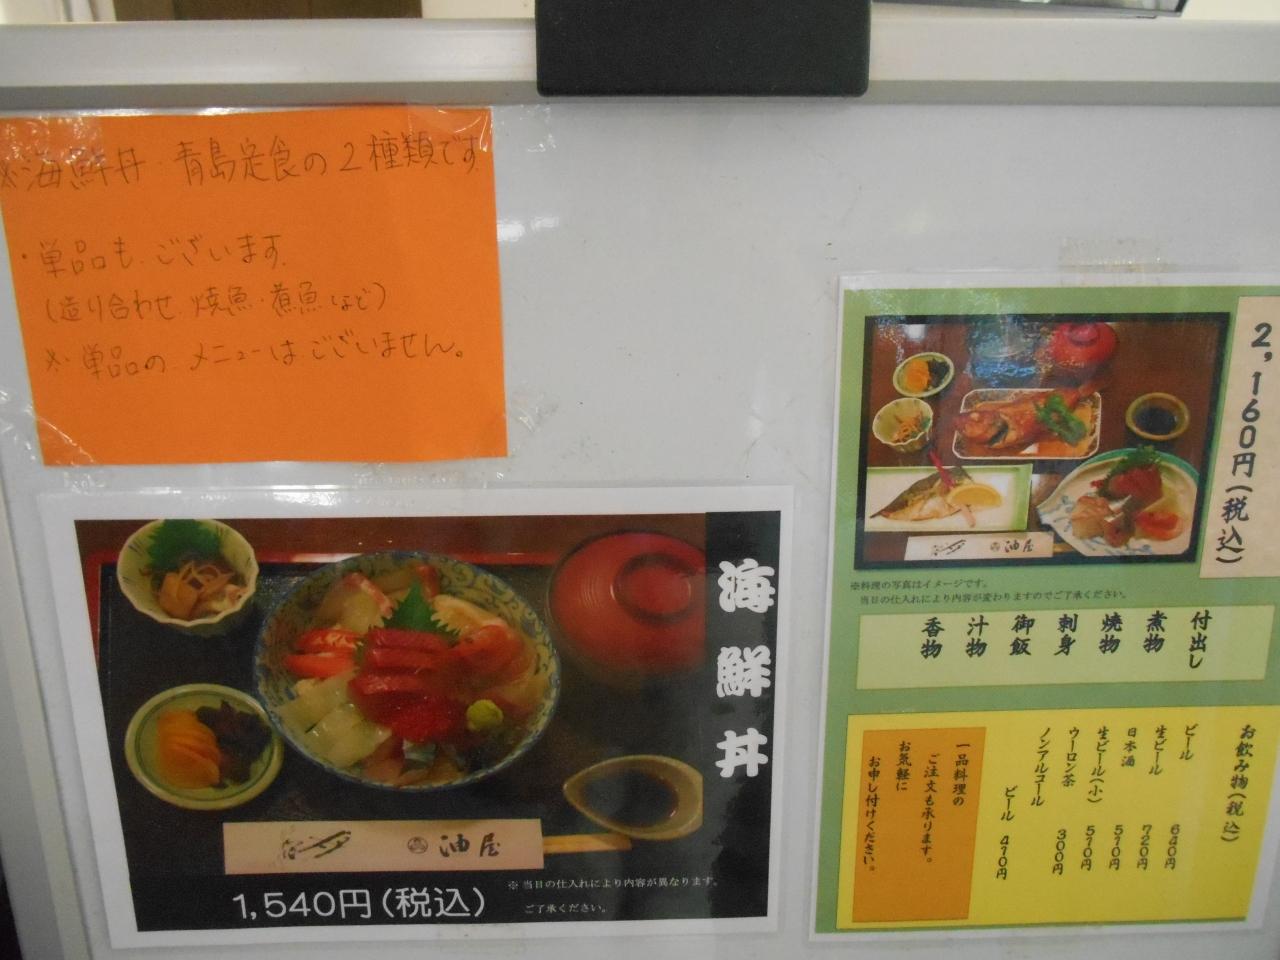 ※海鮮丼・青島定食の2種類です
・単品もございます。
(造り合わせ 焼魚・煮魚など)
※単品のメニューはございません。
海鮮丼
油屋
1,540円(税込)
※当日の仕入れにより内容が異なります。
ご了承ください。
2,160円(税込)
油屋
※料理の写真はイメージです。
当日の仕入れにより内容が変わりますのでご了承ください。
付出し
煮物
焼物
刺身
御飯
汁物
香物
お飲み物(税込)
ビール 640円
生ビール 720円
日本酒 510円
生ビール(小) 510円
ウーロン茶 300円
ノンアルコール
ビール 410円
一品料理の
ご注文も承ります。
お気軽に
お申し付けください。